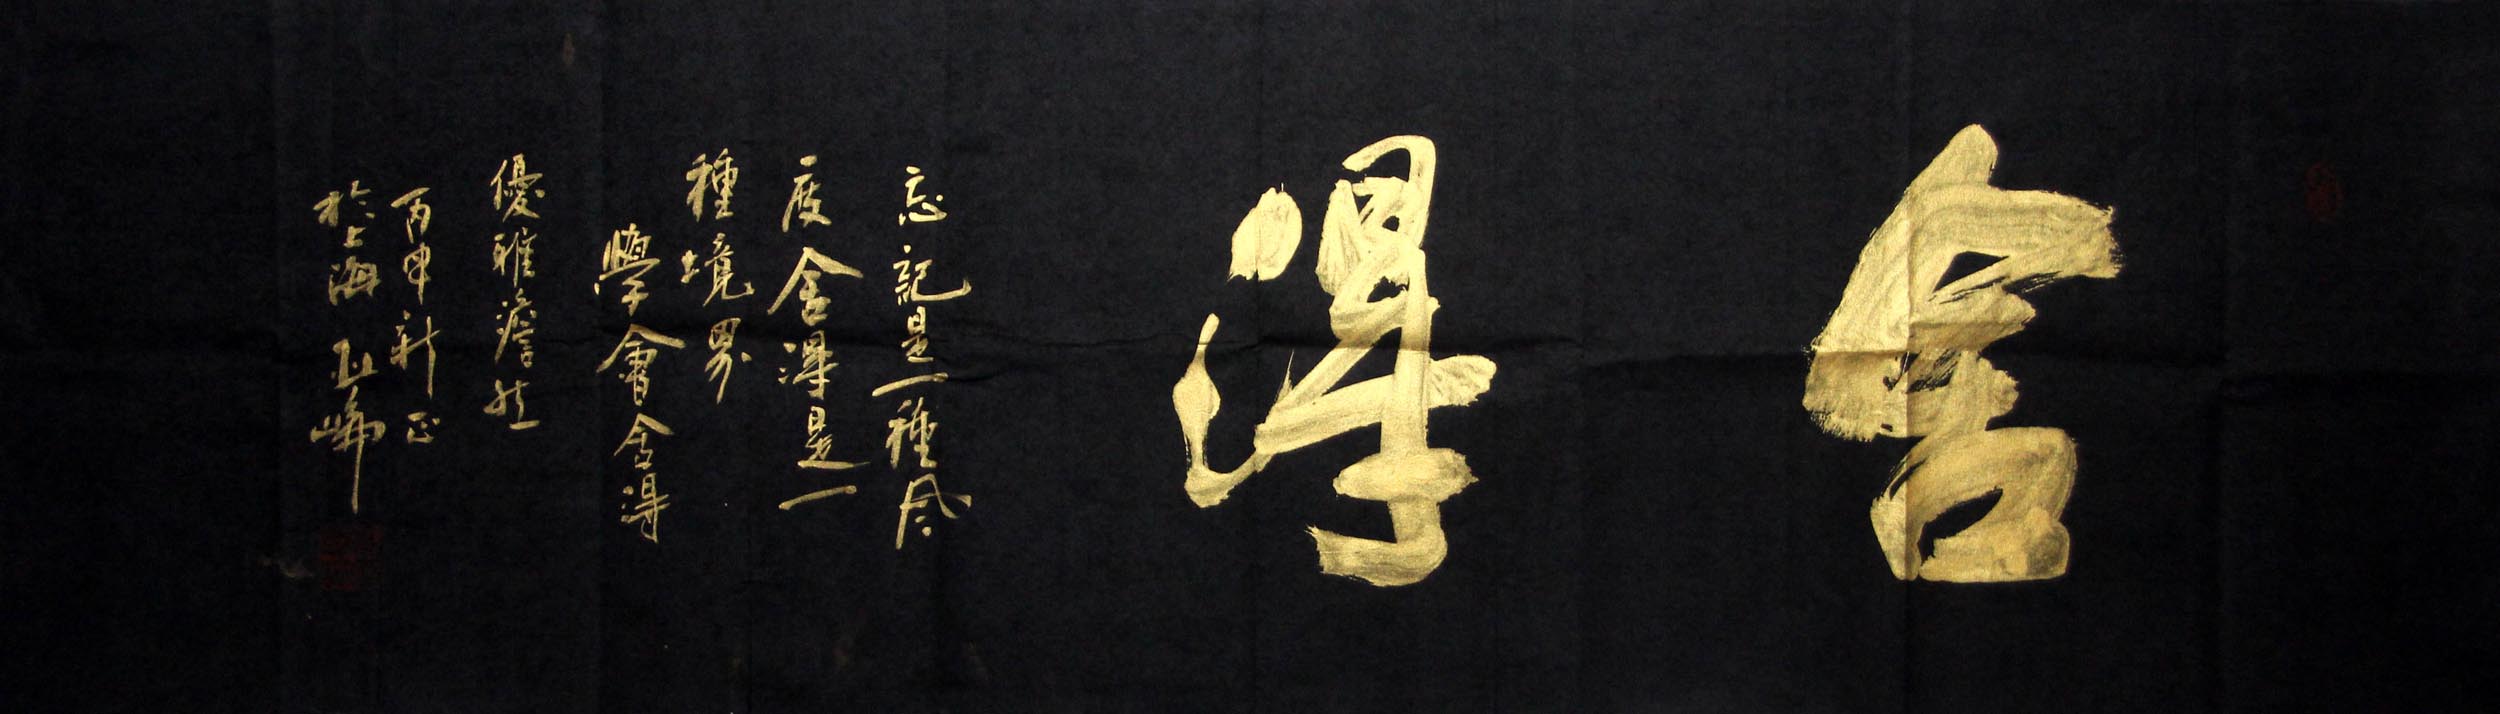 舍得
忘記是一種風
度舍得是一
種境界
學會舍得
優雅澹然
丙申新正
於上海